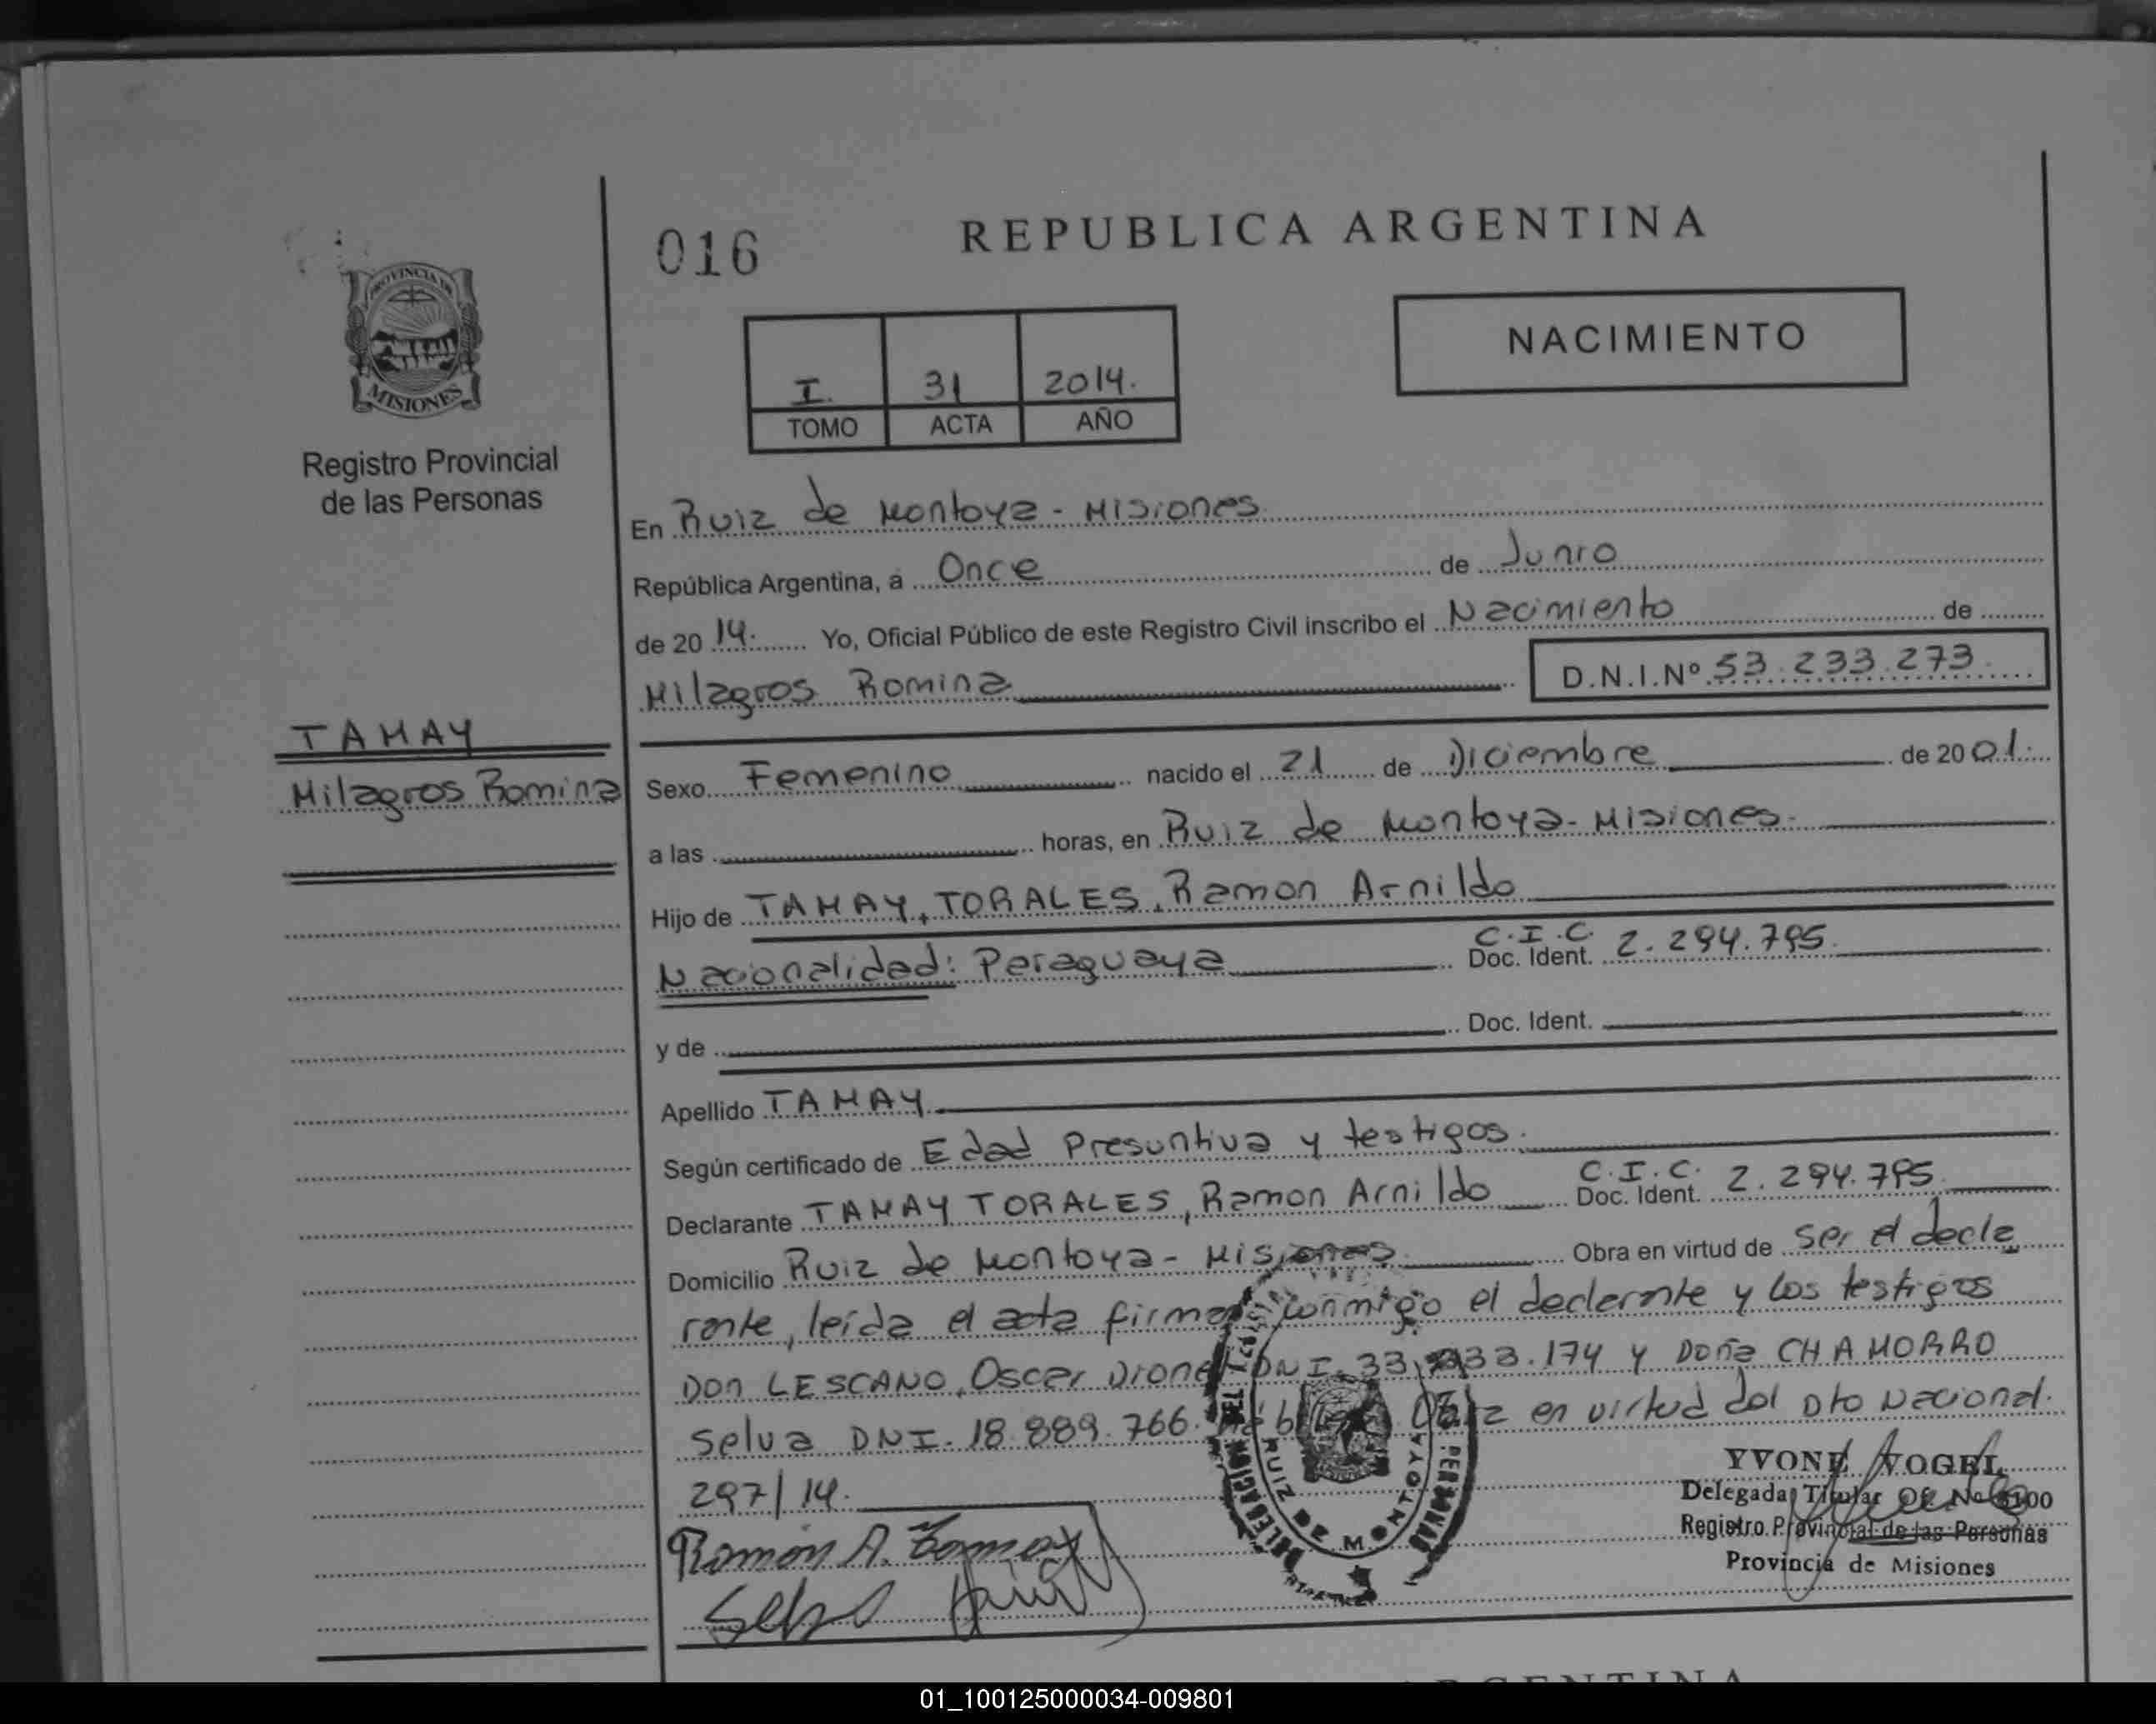 016
REPUBLICA ARGENTINA
NACIMIENTO
I. 31 2014.
TOMO ACTA AÑO
PROVINCIA DE
MISIONES
Registro Provincial
de las Personas
En Ruiz de Montoya - Misiones
República Argentina, a Once de Junio
de 20 14. Yo, Oficial Público de este Registro Civil inscribo el Nacimiento de
Milagros Romina D.N.I.Nº 53.233.273.
TAMAY
Milagros Romina
Sexo Femenino nacido el 21 de Diciembre de 20 01.
a las horas, en Ruiz de Montoya - Misiones.
Hijo de TAMAY, TORALES, Ramon Arnildo
Nacionalidad: Paraguaya C.I.C. Doc. Ident. 2.294.795.
y de Doc. Ident.
Apellido TAMAY
Según certificado de Edad Presuntiva y testigos.
Declarante TAMAY TORALES, Ramon Arnildo C.I.C. Doc. Ident. 2.294.795
Domicilio Ruiz de Montoya - Misiones Obra en virtud de ser el decla
rante, leída el acta firman conmigo el declarante y los testigos
Don LESCANO, Oscar DNI. 33 33.174 y Doña CHAMORRO
Selva DNI. 18.889.766. en virtud del Dto Nacional.
297/14.
DELEGACION
RUIZ DE MONTOYA
YVONE VOGEL
Delegada Titular Of. Nº 100
Registro Provincial de las Personas
Provincia de Misiones
Ramón A. Tamay
ARGENTINA
01_100125000034-009801